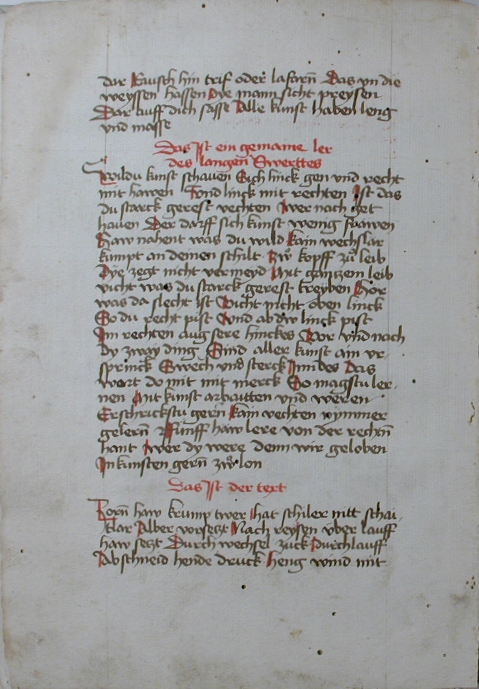 dar Rausch hin trif oder la farn̄ Das yn die
weyssen hassen Dye mann sicht preysen
Dar auff dich fasse Alle kunst haben leng
vnd masse
Das Ist ein gemaine ler
des langen Swerttes
Wildu kunst schauen Sich linck gen vnd recht
mit hawen Vnd linck mit rechten Ist das
du starck gerest vechten Wer nach get
hauen Der darff sich kunst wenig frawen
Haw nahent was du wild kain wechslar
kumpt an deinen schilt Zẘ kopff zẘ leib
Dye zegt nicht vermeyd Mit gantzem leib
vicht was du starck gerest treyben Hor
was da slecht Ist Vicht nicht oben linck
So du recht pist Vnd ab dw linck pist
Im rechten aug sere hinckes Vor vnd nach
dy zway ding Sind aller kunst ain vr
sprinck Swech vnd sterck Inndes Das
wort do mit mit merck So magstu ler
nen Mit kunst arbaitten vnd weren
Erschrickstu gern Kain vechten nymmer
gelern̄ Funff haw lere von der rechtn̄
hant Wer dy were denn wir geloben
In kunsten gern̄ zẘ lon
Das Ist der text
Zorn̄ haw krump twer Hat schiler mitt schai
tlar Alber vorsetzt Nach reysen vber lauff
haw setzt Durch wechsel zuck Durchlauff
Abschneid hende druck Heng wind mit